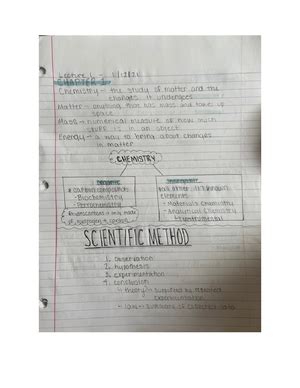 Lecture 1 -
CHAPTER 1
Chemistry - the study of matter and the
changes it undergoes
Matter - anything that has mass and takes up
space
Mass - numerical measure of how much
stuff is in an object
Energy - a way to bring about changes
in matter
CHEMISTRY
Organic
Inorganic
carbon
- Biochemistry
- Petrochemistry
all other
elements
- Materials Chemistry
- Analytical Chemistry
- Environmental
SCIENTIFIC METHOD
1. observation
2. hypothesis
3. experimentation
4. conclusion
theory - supported by
experimentation
law - summary of collected data